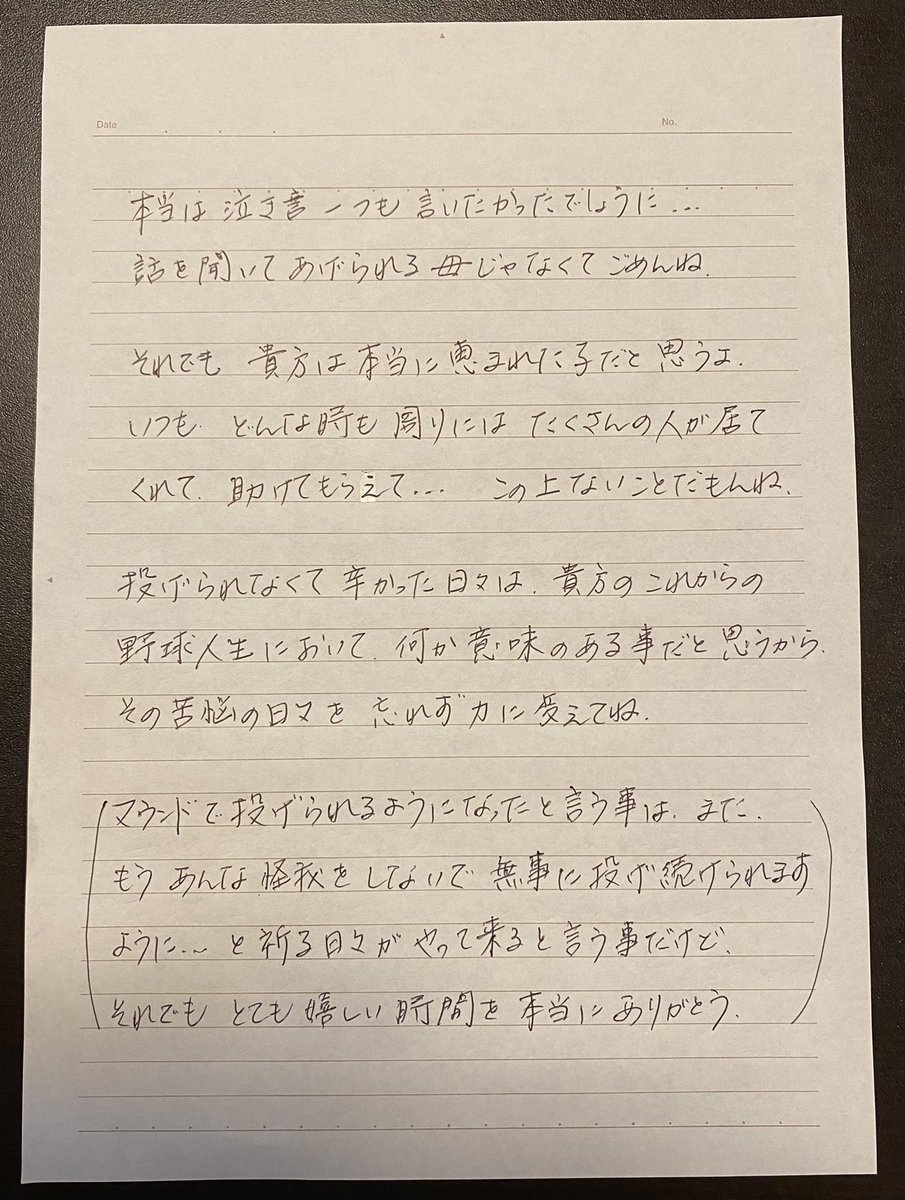 Date
No.
本当は泣き言一つも言いたかったでしょうに...
話を聞いてあげられる母じゃなくてごめんね.
それでも 貴方は本当に恵まれた子だと思うよ.
いつも. どんな時も 周りには たくさんの人が居て
くれて. 助けてもらえて... この上ないことだもんね.
投げられなくて 辛かった日々は. 貴方のこれからの
野球人生において. 何か意味のある事だと思うから.
その苦悩の日々を 忘れず力に変えてね.
(マウンドで投げられるようになったと言う事は. また.
もう あんな怪我をしないで 無事に投げ続けられます
ように... と祈る日々が やって来ると言う事だけど.
それでも とても嬉しい時間を 本当にありがとう.)